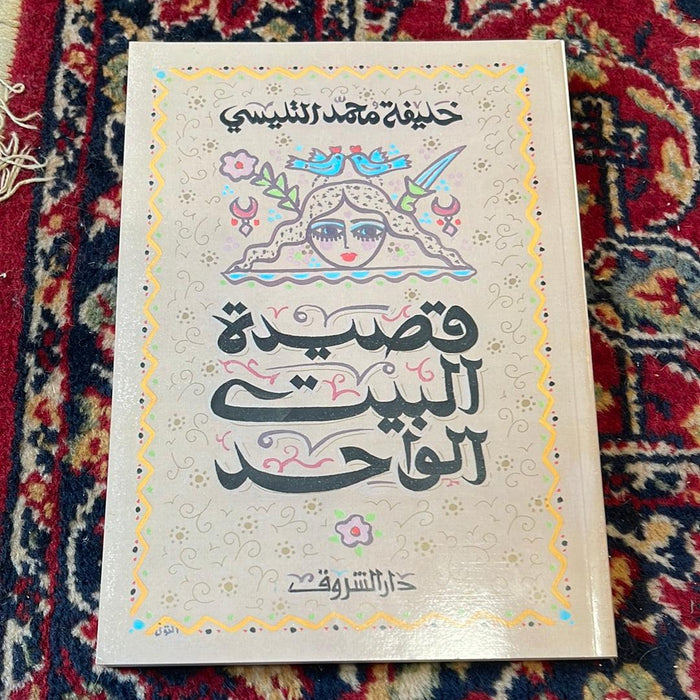 خليفة محمّد التليسي
قصيدة
البيت
الواحد
دار الشروق
التونى